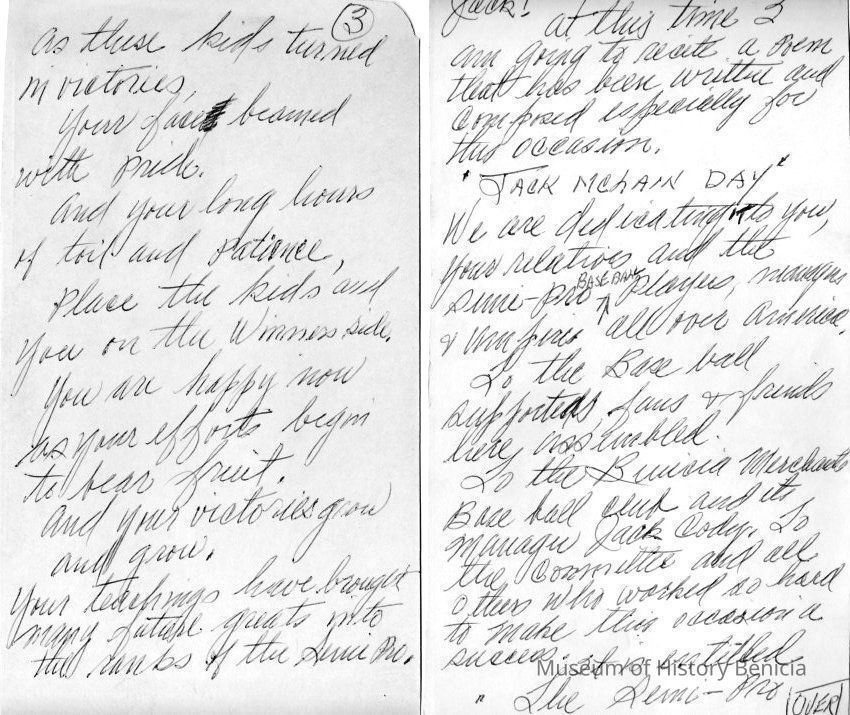 ③
As these kids turned
in victories,
your face beamed
with pride.
And your long hours
of toil and patience,
Place the kids and
you on the Winners side.
You are happy now
as your efforts begin
to bear fruit.
And your victories grow
and grow.
Your teachings have brought
many future greats into
the ranks of the Semi Pro.
Jack!
At this time I
am going to recite a Poem
that has been written and
composed especially for
this occasion.
"JACK MCLAIN DAY"
We are dedicating it to you,
your relatives and the
BASE BALL
Semi-Pro ^ Players, managers
& umpires all over America.
To the Base ball
supporters, fans & friends
here assembled.
To the Benicia Merchants
Base ball club and its
Manager Jack Cody. To
the Committee and all
others who worked so hard
to make this occasion a
success. It is entitled
" The Semi-Pro
OVER
Museum of History Benicia